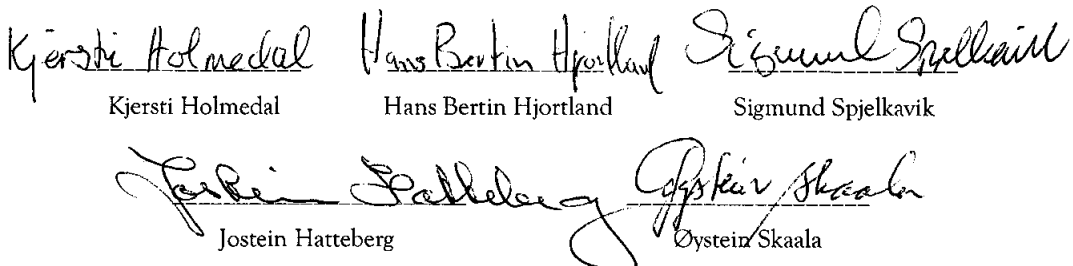 Kjersti Holmedal Hans Bertin Hjortland Sigmund Spjelkavik
Kjersti Holmedal Hans Bertin Hjortland Sigmund Spjelkavik
Jostein Hatteberg Øystein Skaala
Jostein Hatteberg Øystein Skaala